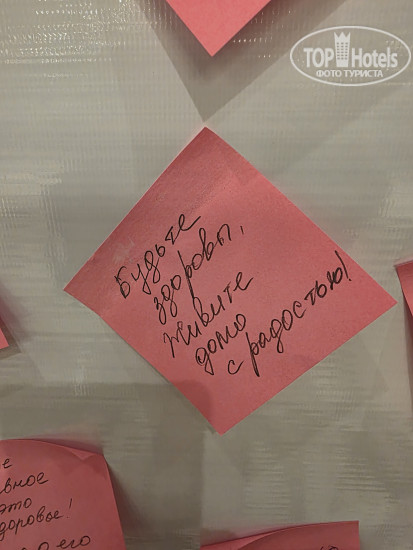 TOP Hotels
ФОТО ТУРИСТА
Будьте
здоровы,
живите
долго
с радостью!
е
вное
это
доровье!
его